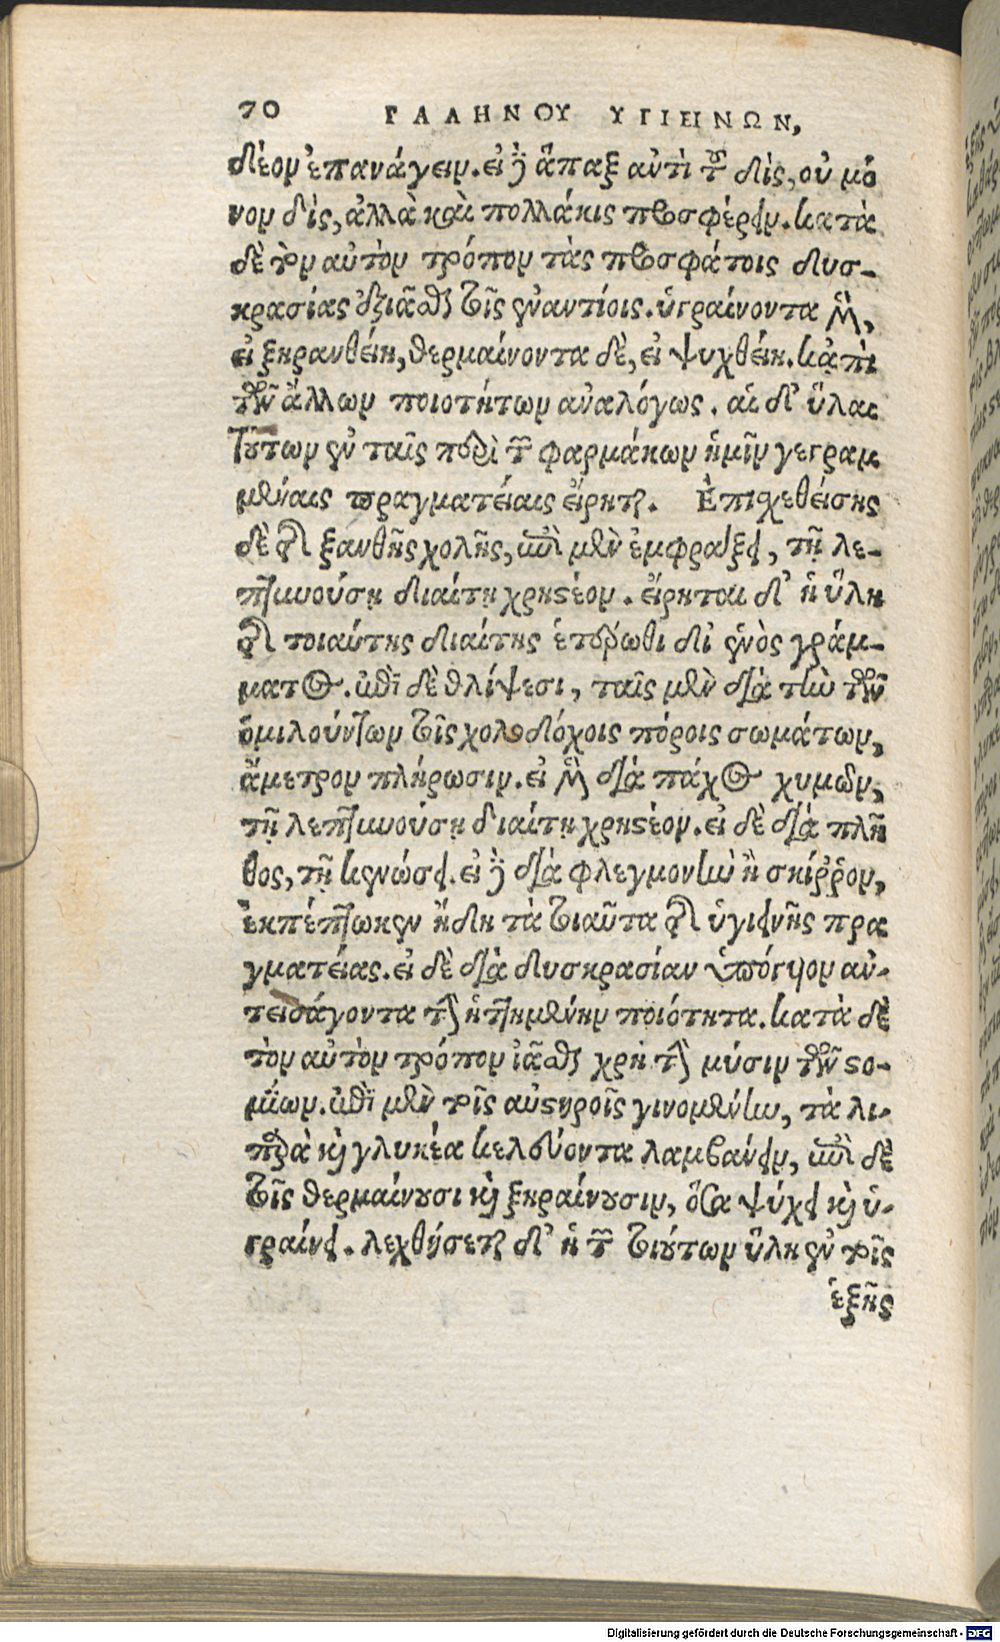 70 ΓΑΛΗΝΟΥ ΥΓΙΕΙΝΩΝ,
δέον ἐπανάγειν. εἰ δὲ ἅπαξ ἀντὶ τοῦ δὶς, οὐ μό
νον δὶς, ἀλλὰ καὶ πολλάκις προσφέρειν. κατὰ
δὲ τὸν αὐτὸν τρόπον τὰς προσφάτοις δυσ-
κρασίας ἰᾶσθαι τοῖς ἐναντίοις. ὑγραίνοντα μὲν,
εἰ ξηρανθείη, θερμαίνοντα δὲ, εἰ ψυχθείη. κἀπὶ
τῶν ἄλλων ποιοτήτων ἀναλόγως. αἱ δ' ὕλαι
τούτων ἐν ταῖς περὶ τῶν φαρμάκων ἡμῖν γεγραμ
μέναις πραγματείαις εἴρηται. Ἐπισχεθείσης
δὲ τῆς ξανθῆς χολῆς, ἐπὶ μὲν ἐμφράξει, τῇ λε-
πτυνούσῃ διαίτῃ χρηστέον. εἴρηται δ' ἡ ὕλη
τῆς τοιαύτης διαίτης ἑτέρωθι δι' ἑνὸς γράμ-
ματος. ἐπὶ δὲ θλίψεσι, ταῖς μὲν διὰ τὴν τῶν
ὁμιλούντων τοῖς χοληδόχοις πόροις σωμάτων,
ἄμετρον πλήρωσιν. εἰ μὲν διὰ πάχος χυμῶν,
τῇ λεπτυνούσῃ διαίτῃ χρηστέον. εἰ δὲ διὰ πλῆ
θος, τῇ κενώσει. εἰ δὲ διὰ φλεγμονὴν ἢ σκίῤῥον,
ἐκπέπτωκεν ἤδη τὰ τοιαῦτα τῆς ὑγιεινῆς πρα
γματείας. εἰ δὲ διὰ δυσκρασίαν ὑπόγυον ἀν-
τεισάγοντα τὴν ἡττημένην ποιότητα. κατὰ δὲ
τὸν αὐτὸν τρόπον ἰᾶσθαι χρὴ τὴν μύσιν τῶν στο-
μίων. ἐπὶ μὲν τοῖς αὐστηροῖς γινομένην, τὰ λι-
παρὰ καὶ γλυκέα κελεύοντα λαμβάνειν, ἐπὶ δὲ
τοῖς θερμαίνουσι καὶ ξηραίνουσιν, ὅσα ψύχει καὶ ὑ-
γραίνει. λεχθήσεται δ' ἡ τῶν τοιούτων ὕλη ἐν τοῖς
ἑξῆς
Digitalisierung gefördert durch die Deutsche Forschungsgemeinschaft - DFG